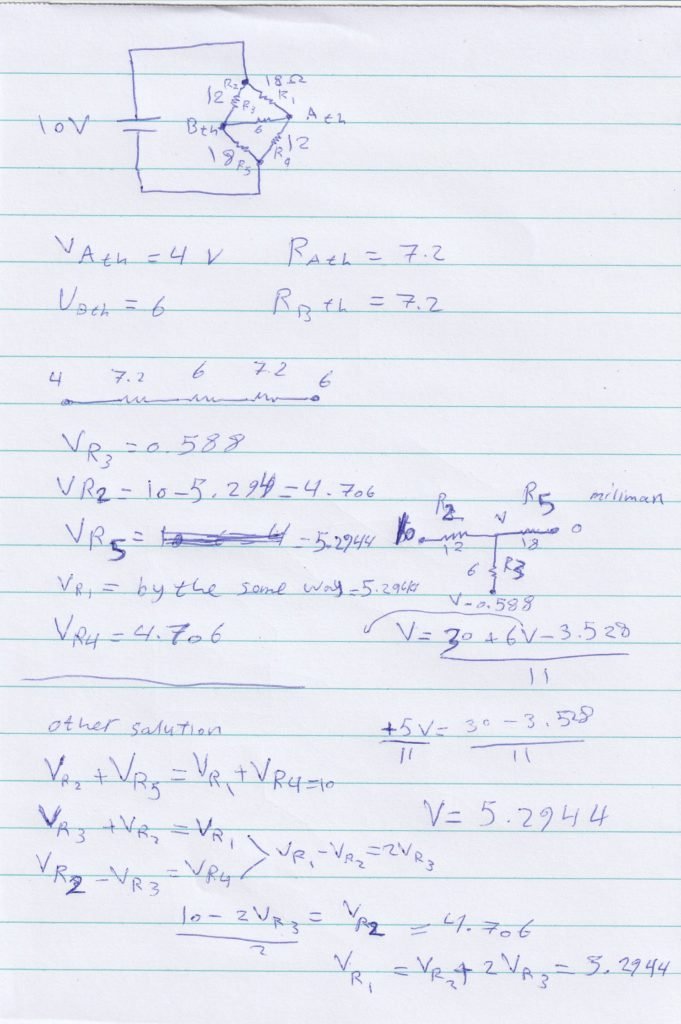 10V
R2
18Ω
R1
12
R3
A th
Bth
6
12
R4
18
R5
VAth = 4 V RAth = 7.2
VBth = 6 RBth = 7.2
4 7.2 6 7.2 6
VR3 = 0.588
VR2 = 10 - 5.294 = 4.706
VR5 = = 5.2944
VR1 = by the same way = 5.2944
VR4 = 4.706
R2 V R5 miliman
10 12 18 0
6 R3
V-0.588
V = 30 + 6V - 3.528
11
+5V = 30 - 3.528
11 11
V = 5.2944
other salution
VR2 + VR5 = VR1 + VR4 = 10
VR3 + VR2 = VR1
VR2 - VR3 = VR4
VR1 - VR2 = 2VR3
10 - 2VR3 = VR2 = 4.706
2
VR1 = VR2 + 2VR3 = 5.2944